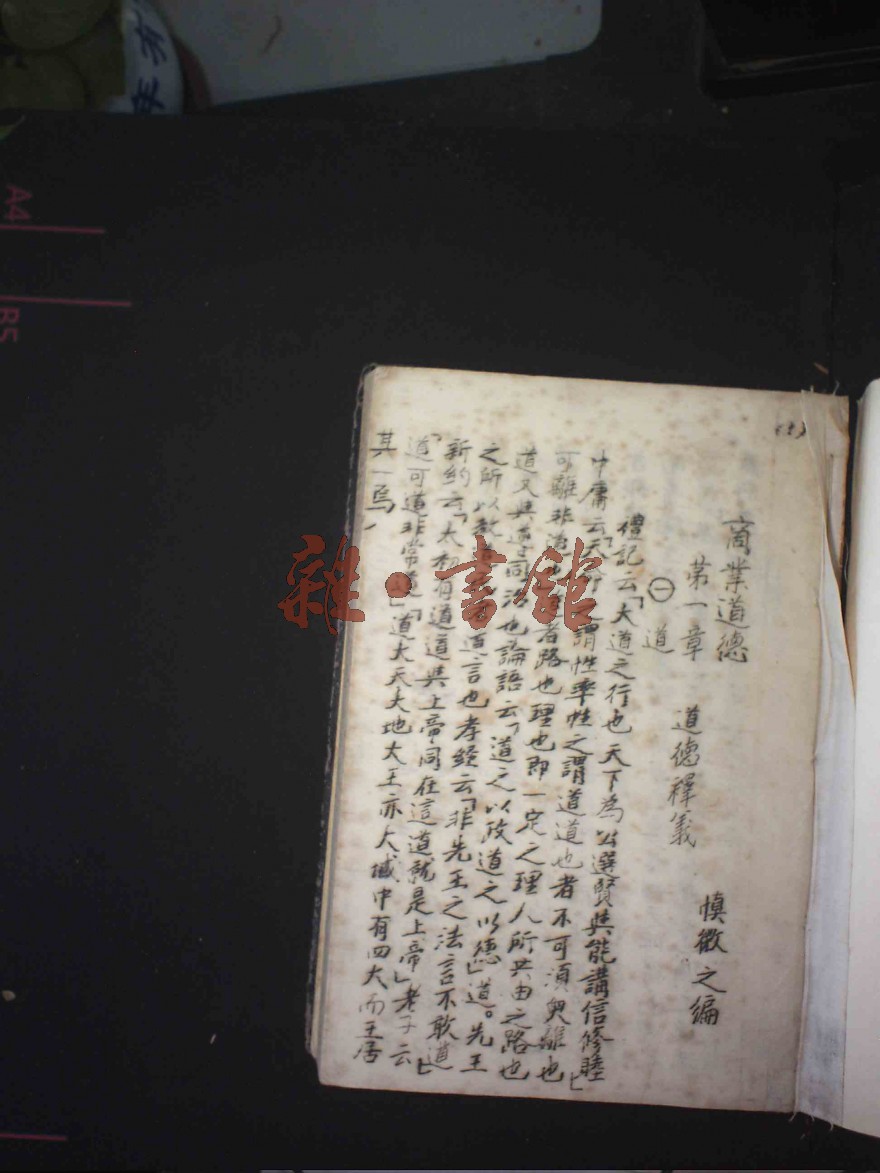 商業道德
慎徵之編
第一章 道德釋義
㊀ 道
禮記云「大道之行也天下為公選賢與能講信修睦」
中庸云「天命之謂性率性之謂道道也者不可須臾離也
可離非道也道者路也理也即一定之理人所共由之路也
道又與導同治也論語云「道之以政道之以德」道。先王
之所以教道言也孝經云「非先王之法言不敢道」
新約云「太初有道道與上帝同在這道就是上帝」老子云
「道可道非常道」「道大天大地大王亦大域中有四大而王居
其一焉
雜·書館
A4
B5